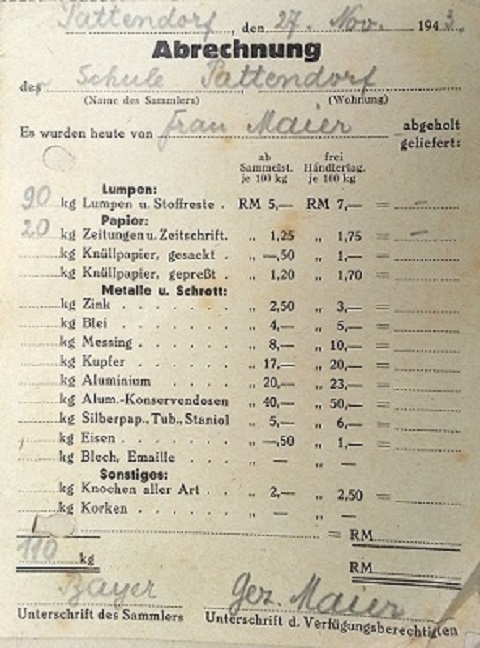 Pattendorf, den 27. Nov. 1943.
Abrechnung
der Schule Pattendorf
(Name des Sammlers) (Wohnung)
Es wurden heute von Frau Maier abgeholt
geliefert:
ab frei
Sammelst. Händlerlag.
je 100 kg je 100 kg
Lumpen:
90 kg Lumpen u. Stoffreste . RM 5,— RM 7,— = —
Papier:
20 kg Zeitungen u. Zeitschrift. „ 1,25 „ 1,75 = —
kg Knüllpapier, gesackt . „ —,50 „ 1,— =
kg Knüllpapier, gepreßt . „ 1,20 „ 1,70 =
Metalle u. Schrott:
kg Zink . . . . . . „ 2,50 „ 3,— =
kg Blei . . . . . . „ 4,— „ 5,— =
kg Messing . . . . . „ 8,— „ 10,— =
kg Kupfer . . . . . „ 17,— „ 20,— =
kg Aluminium . . . . „ 20,— „ 23,— =
kg Alum.-Konservendosen „ 40,— „ 50,— =
kg Silberpap., Tub., Staniol „ 5,— „ 6,— =
kg Eisen . . . . . . „ —,50 „ 1,— =
kg Blech, Emaille . . . „ — „ —
Sonstiges:
kg Knochen aller Art . . „ 2,— „ 2,50 =
kg Korken . . . . . „ — „ —
= RM
110 kg RM
Bayer gez. Maier
Unterschrift des Sammlers Unterschrift d. Verfügungsberechtigten